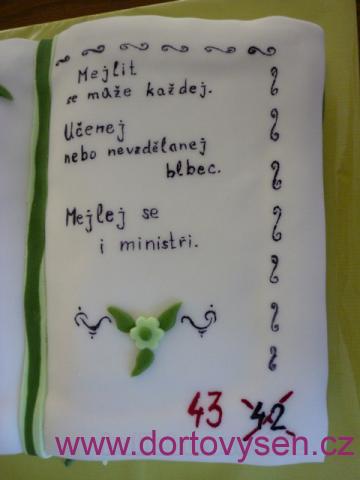 Mejlit
se může každej.
Učenej
nebo nevzdělanej
blbec.
Mejlej se
i ministři.
43 42
www.dortovysen.cz